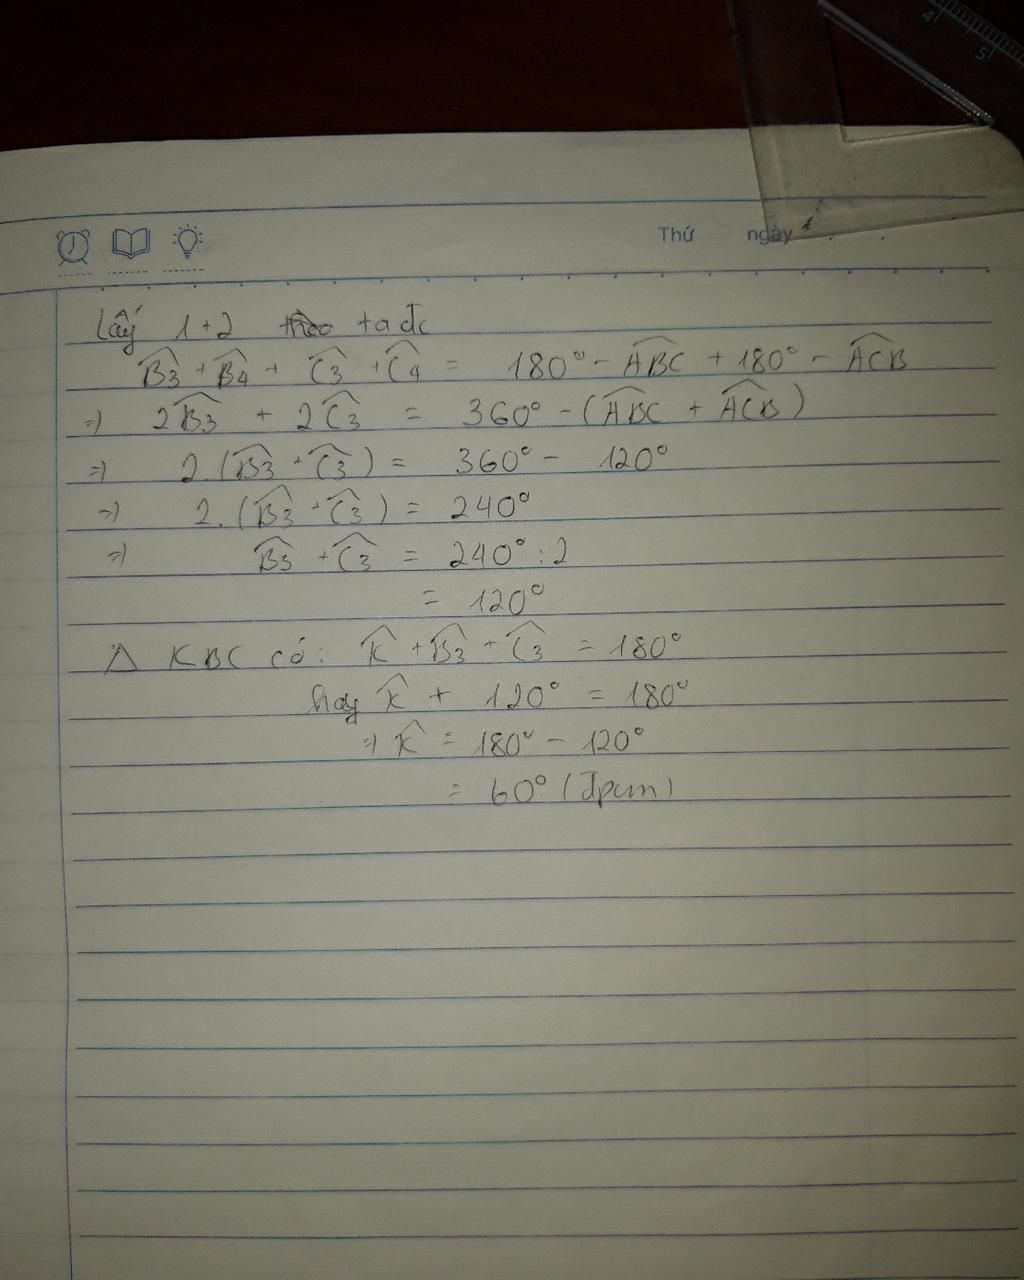 4
5
Thứ ngày
Lấy 1+2 ta đc
B̂3 + B̂4 + Ĉ3 + Ĉ4 = 180° - ABC + 180° - ACB
=) 2B̂3 + 2Ĉ3 = 360° - (ABC + ACB)
=) 2.(B̂3 + Ĉ3) = 360° - 120°
=) 2.(B̂3 + Ĉ3) = 240°
=) B̂3 + Ĉ3 = 240° : 2
= 120°
Δ KBC có: K̂ + B̂3 + Ĉ3 = 180°
hay K̂ + 120° = 180°
=) K̂ = 180° - 120°
= 60° (đpcm)